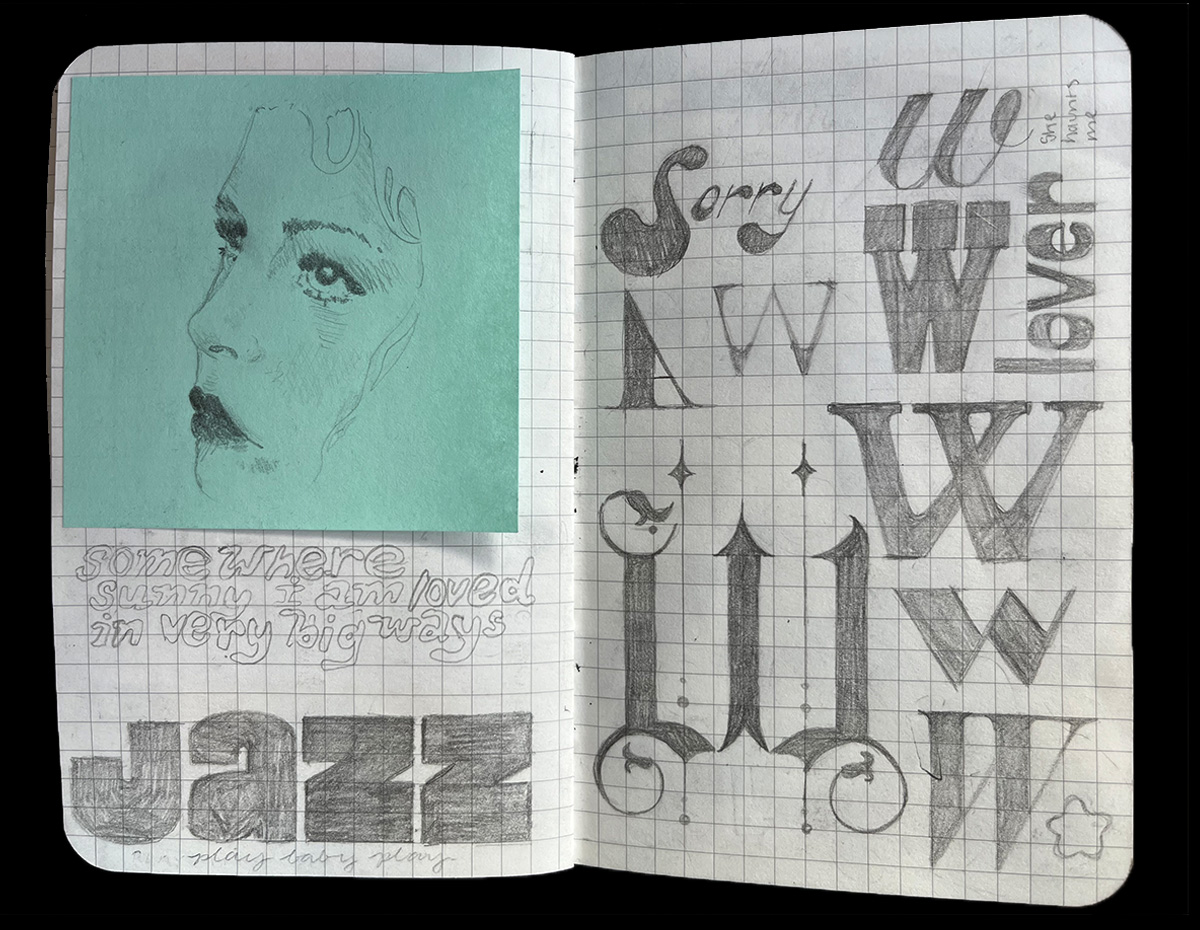 somewhere
sunny i am loved
in very big ways
Jazz
play baby play
W
she
haunts
me
Sorry
W
lover
A W
W
W
W
W